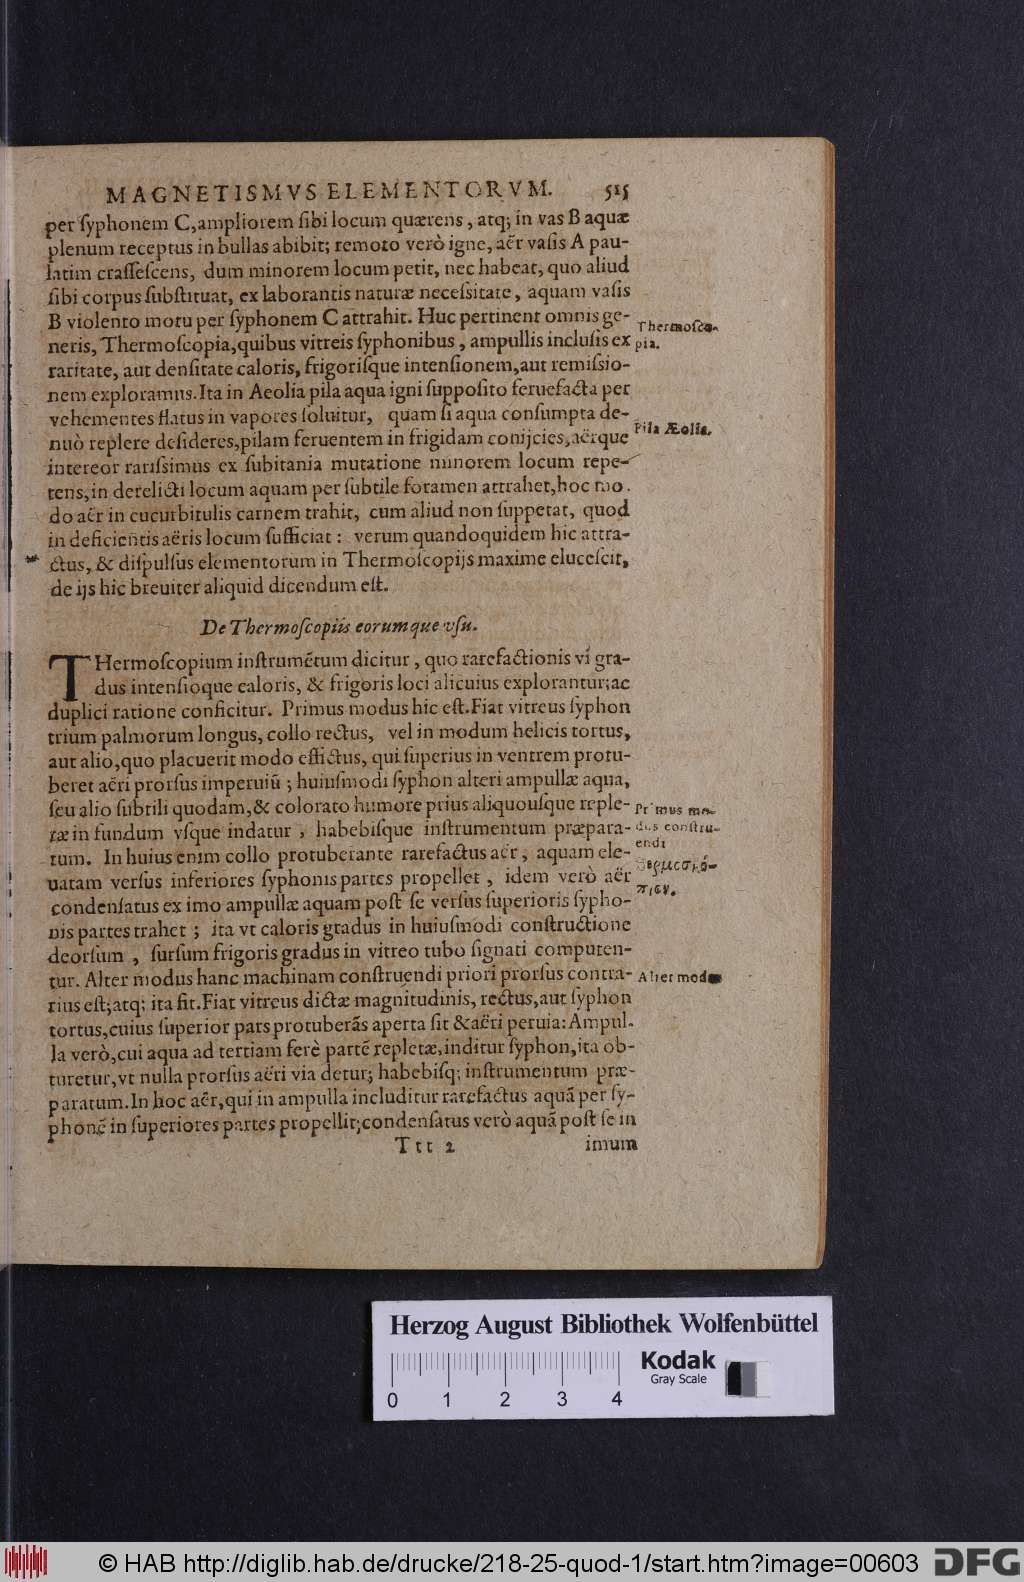 MAGNETISMVS ELEMENTORVM. 515
per ſyphonem C, ampliorem ſibi locum quærens, atq; in vas B aquæ
plenum receptus in bullas abibit; remoto verò igne, aër vaſis A pau-
latim craſſeſcens, dum minorem locum petit, nec habeat, quo aliud
ſibi corpus ſubſtituat, ex laborantis naturæ neceſsitate, aquam vaſis
B violento motu per ſyphonem C attrahit. Huc pertinent omnis ge-
neris, Thermoſcopia, quibus vitreis ſyphonibus, ampullis incluſis ex
raritate, aut denſitate caloris, frigoriſque intenſionem, aut remiſsio-
nem exploramus. Ita in Aeolia pila aqua igni ſuppoſito feruefacta per
vehementes flatus in vapores ſoluitur, quam ſi aqua conſumpta de-
nuò replere deſideres, pilam feruentem in frigidam conijcies, aërque
intereor rariſsimus ex ſubitania mutatione minorem locum repe-
tens, in derelicti locum aquam per ſubtile foramen attrahet, hoc mo.
do aër in cucurbitulis carnem trahit, cum aliud non ſuppetat, quod
in deficientis aëris locum ſufficiat: verum quandoquidem hic attra-
ctus, & diſpulſus elementorum in Thermoſcopijs maxime eluceſcit,
de ijs hic breuiter aliquid dicendum eſt.
Thermoſco-
pia.
Pila Æolia.
De Thermoſcopiis eorumque vſu.
THermoſcopium inſtrumẽtum dicitur, quo rarefactionis vi gra-
dus intenſioque caloris, & frigoris loci alicuius explorantur; ac
duplici ratione conficitur. Primus modus hic eſt. Fiat vitreus ſyphon
trium palmorum longus, collo rectus, vel in modum helicis tortus,
aut alio, quo placuerit modo effictus, qui ſuperius in ventrem protu-
beret aëri prorſus imperuiũ; huiuſmodi ſyphon alteri ampullæ aqua,
ſeu alio ſubtili quodam, & colorato humore prius aliquouſque reple-
tæ in fundum vſque indatur, habebiſque inſtrumentum præpara-
tum. In huius enim collo protuberante rarefactus aër, aquam ele-
uatam verſus inferiores ſyphonis partes propellet, idem verò aër
condenſatus ex imo ampullæ aquam poſt ſe verſus ſuperioris ſypho-
nis partes trahet; ita vt caloris gradus in huiuſmodi conſtructione
deorſum, ſurſum frigoris gradus in vitreo tubo ſignati computen-
tur. Alter modus hanc machinam conſtruendi priori prorſus contra-
rius eſt; atq; ita fit. Fiat vitreus dictæ magnitudinis, rectus, aut ſyphon
tortus, cuius ſuperior pars protuberãs aperta ſit & aëri peruia: Ampul.
la verò, cui aqua ad tertiam ferè partẽ repletæ, inditur ſyphon, ita ob-
turetur, vt nulla prorſus aëri via detur; habebiſq; inſtrumentum præ-
paratum. In hoc aër, qui in ampulla includitur rarefactus aquã per ſy-
phonẽ in ſuperiores partes propellit; condenſatus verò aquã poſt ſe in
Primus mo-
dus conſtru-
endi
Alter modus
Ttt 2 imum
Herzog August Bibliothek Wolfenbüttel
0 1 2 3 4
Kodak
Gray Scale
© HAB http://diglib.hab.de/drucke/218-25-quod-1/start.htm?image=00603 DFG